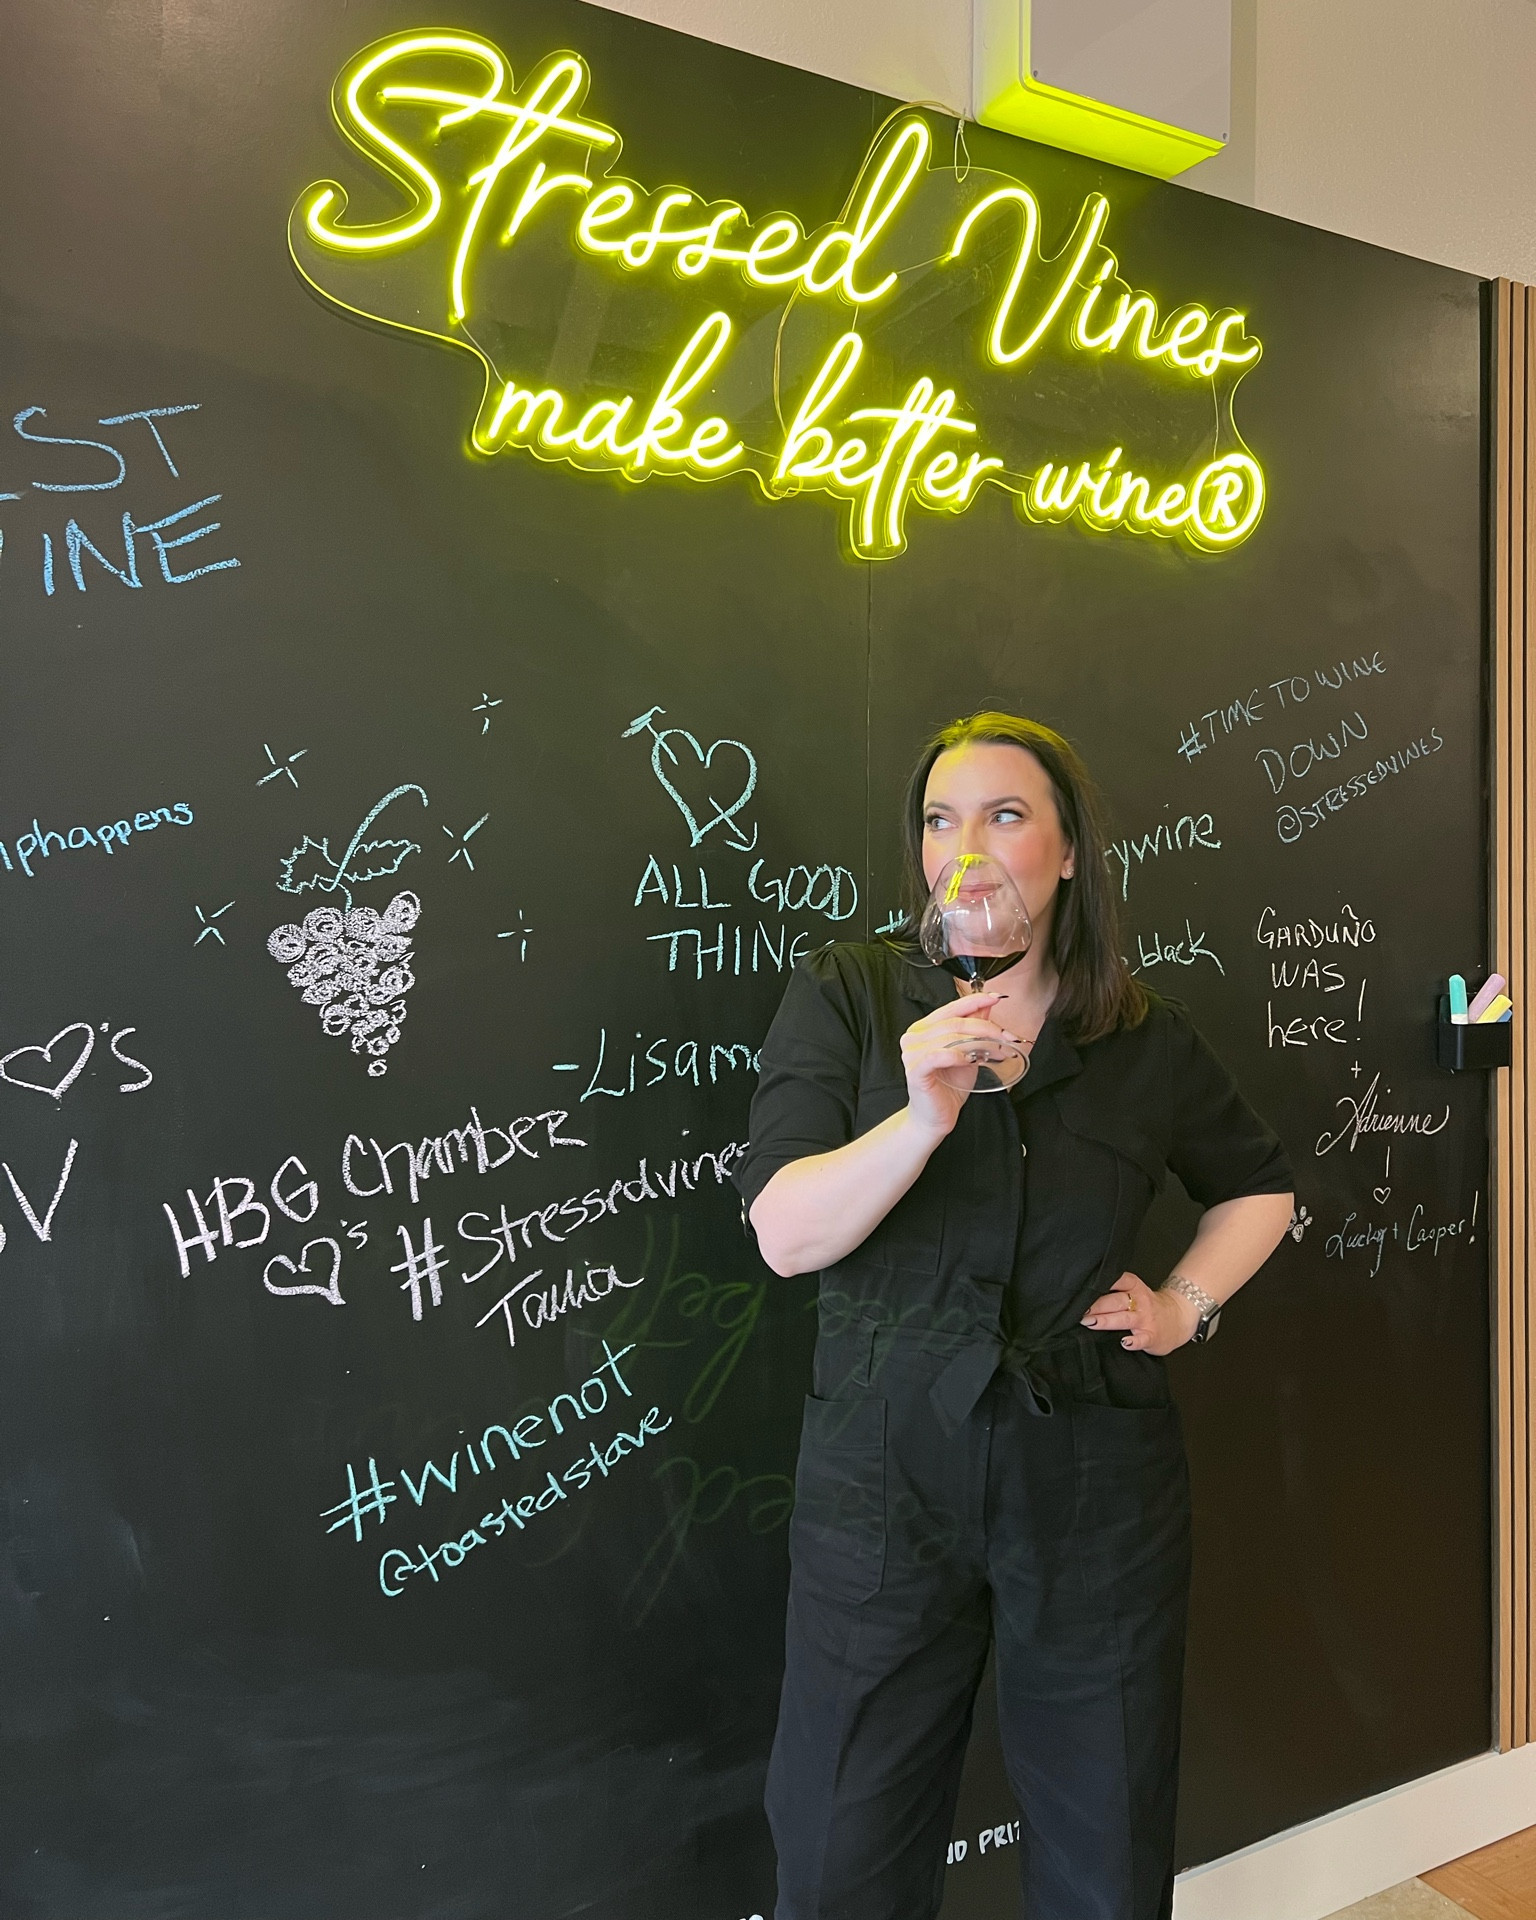 Stressed Vines
make better wine®
ST
INE
#TIME TO WINE
DOWN
@STRESSEDVINES
iphappens
ALL GOOD
THING
ywine
black
GARDUÑO
WAS
here!
+
Adrienne
Lucky + Casper!
♡'s
V
HBG Chamber
♡'s #Stressedvines
Tamia
#winenot
@toastedstave